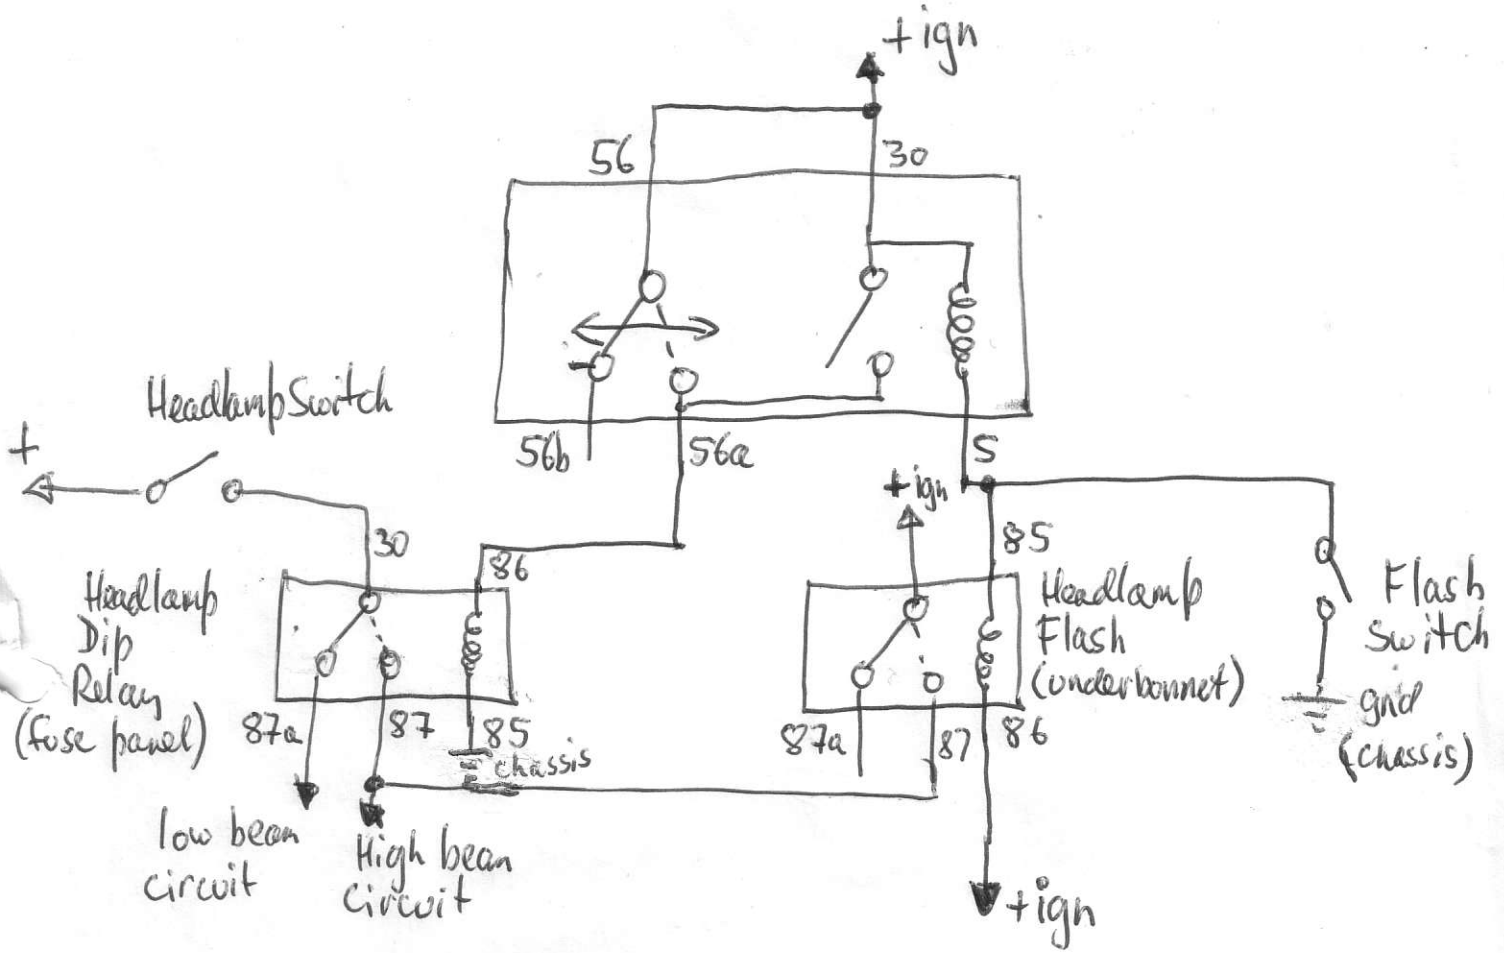 +ign
56
30
Headlamp Switch
+
56b
56a
5
+ign
30
86
85
Headlamp
Dip
Relay
(fuse panel)
Headlamp
Flash
(underbonnet)
Flash
Switch
87a
87
85
chassis
87a
87
86
gnd
(chassis)
low beam
circuit
High beam
circuit
+ign